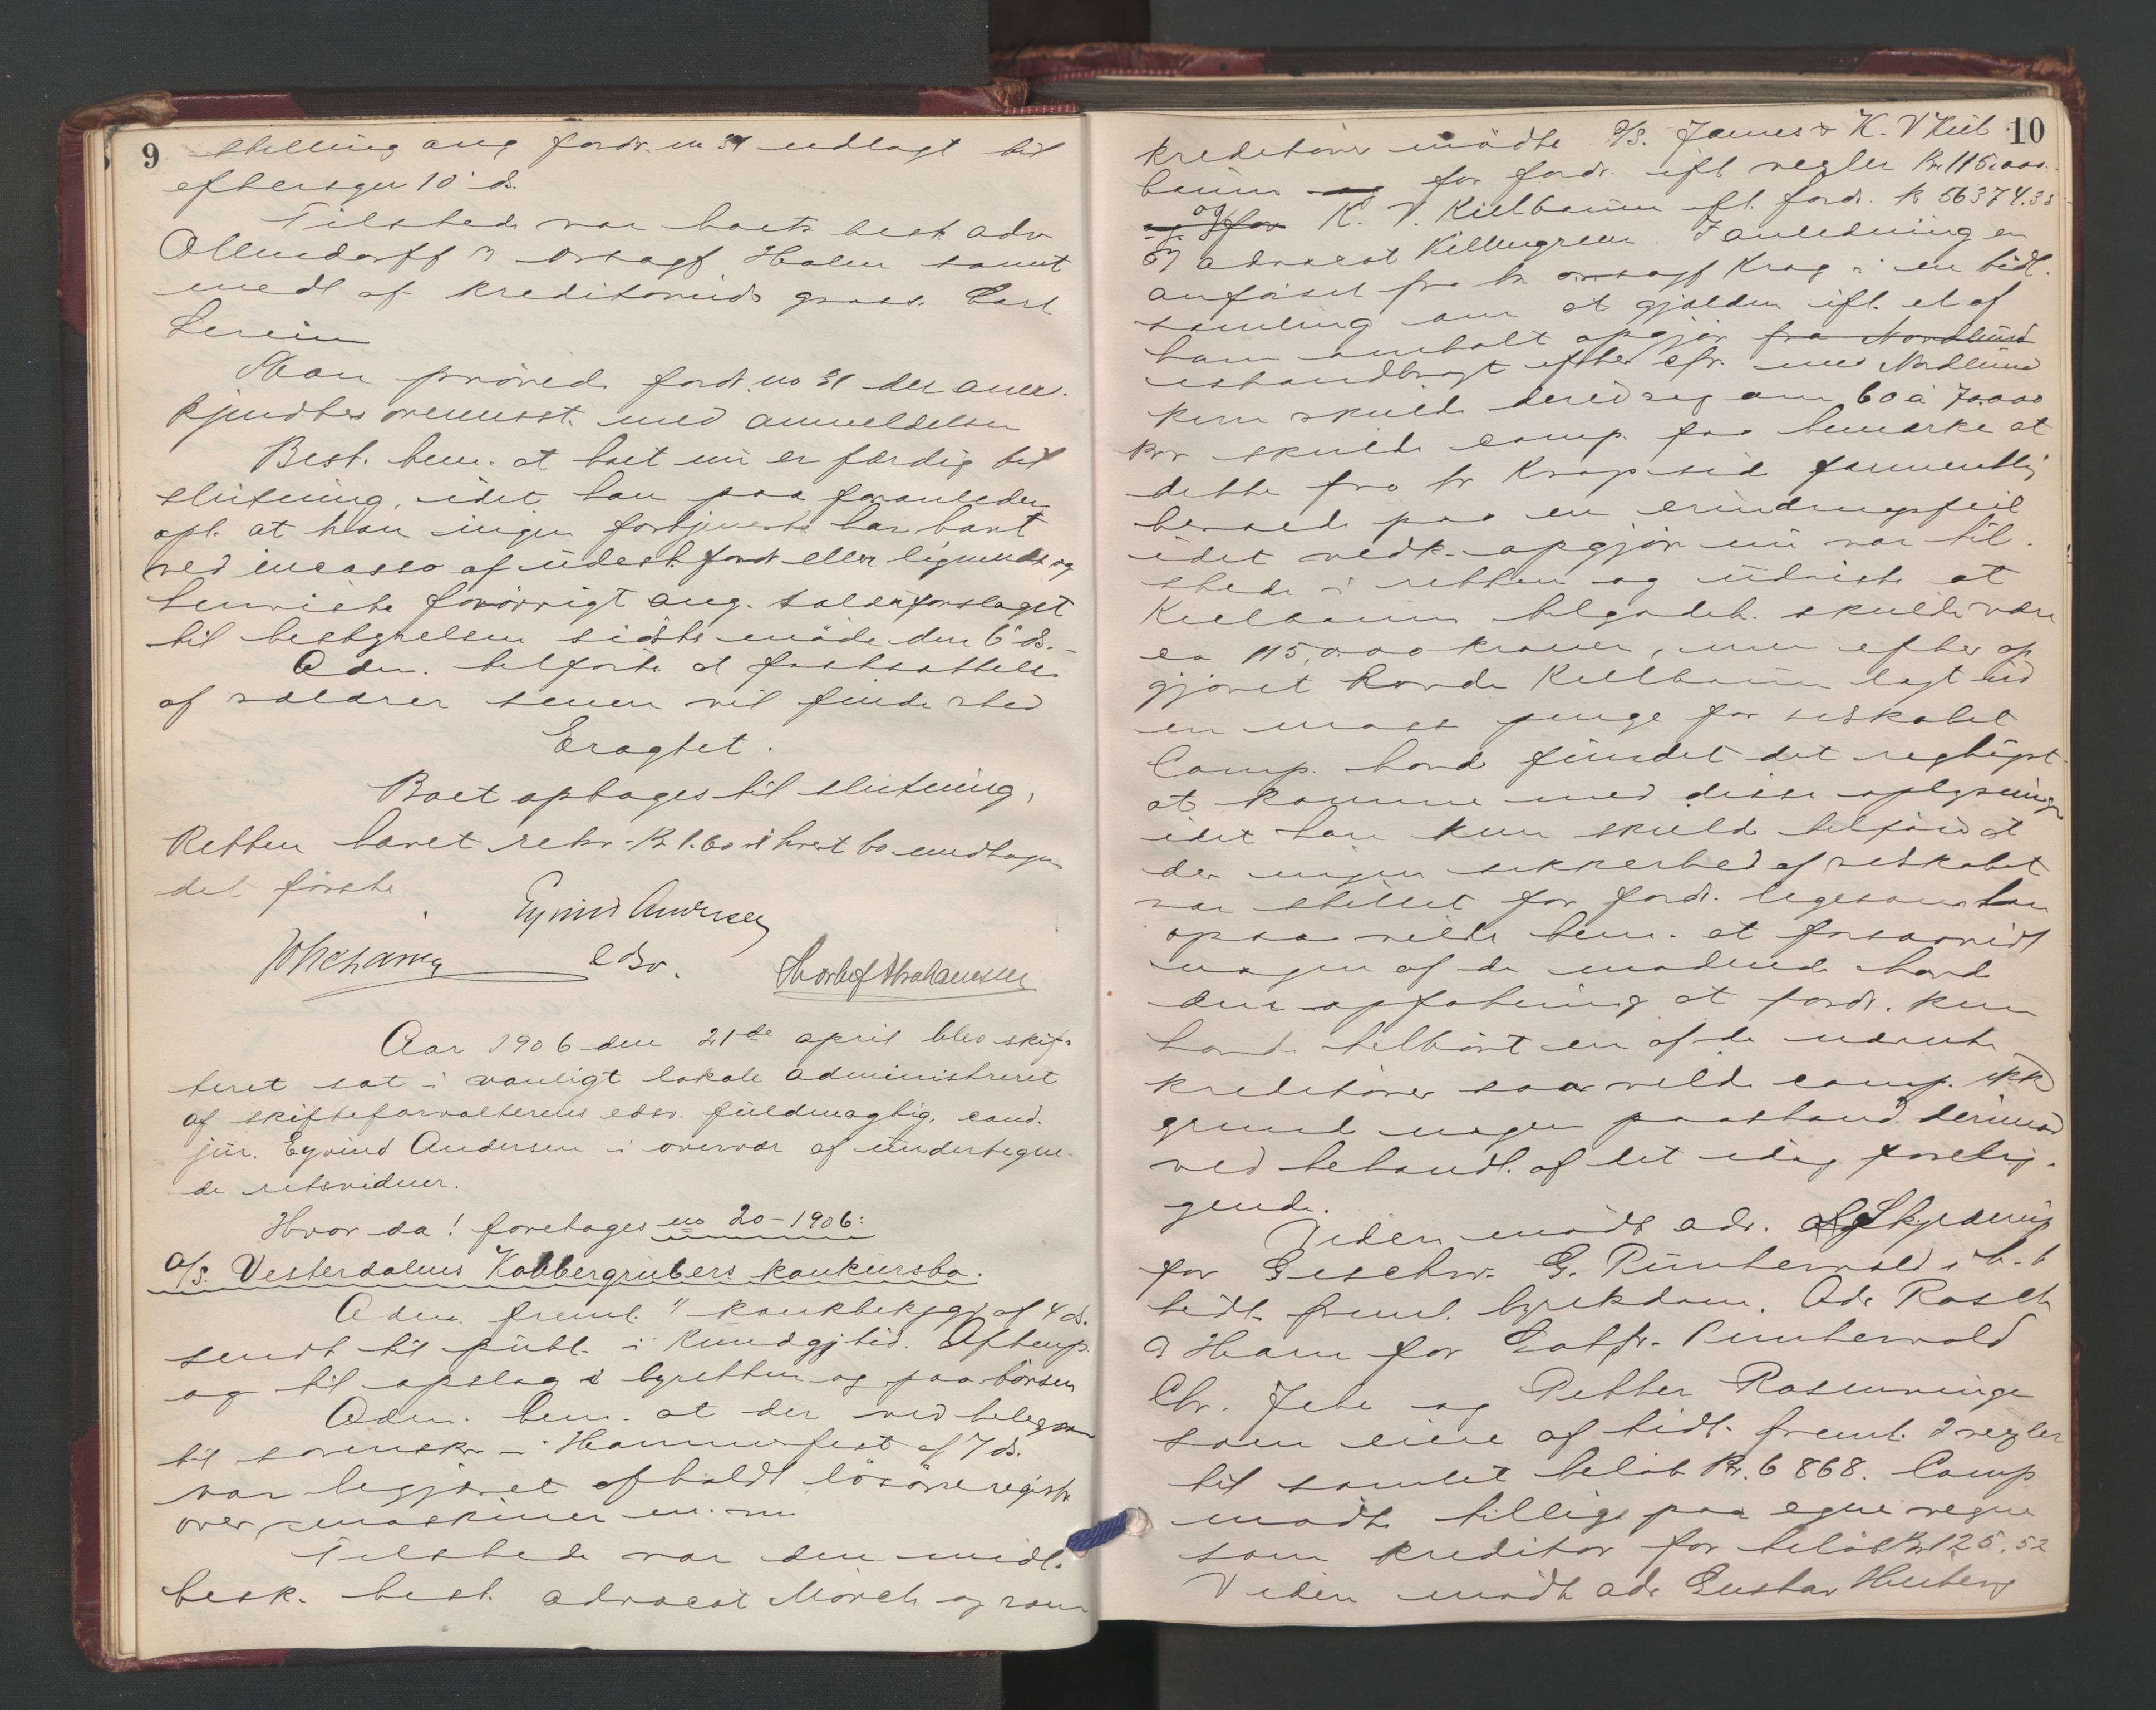 9
stilling ang fordr. no 31 udlagt til
eftersyn 10' ds.
Tilstede var boets best. adv
Ollendorff v orsagf. Holm samt
medl af kreditorudv gross. Carl
Man prøvede fordr. no 31 der aner-
kjendtes overensst. med anmeldelsen
Best. bem. at boet nu er færdig til
slutning, idet han paa foranledn
opl. at han ingen fortjeneste har havt
ved incasso af udest. fordr eller lignende og
henviste forøvrigt ang. salærforslaget
til bestyrelsen sidste møde den 6' ds.
Adm. tilførte at fastsættelse
af salærer senere vil finde sted
Eragtet.
Boet optages til slutning,
Retten hævet rekv. Kr 1.60 i hvert bo undtagen
det første
Eyvind Andersen
edsv.
Aar 1906 den 21de april blev skif-
teret sat i vanligt lokale administreret
af skifteforvalterens edsv. fuldmægtig, cand.
jur. Eyvind Andersen i overvær af undertegne-
de retsvidner.
Hvor da! foretages no 20-1906:
A/S. Vesterdalens Kobbergrubers konkursbo.
Adm. freml. 1) konkbekjgj af 4 ds.
sendt til publ. i Kundgjtid. Aftenp.
og til opslag i byretten og paa børsen
Adm. bem. at der ved telegram
til sorenskr i Hammerfest af 7 ds.
var begjæret afholdt løsøreregistr
over maskiner m. m.
Tilstede var den midl.
besk. best. advocat Mørch og som
10
kreditorer mødte A/S. James & K. V Kiel
baum for fordr. ifl vexler Kr. 115.000.
og for K. V. Kielbaum ifl. fordr. kr 56374.38
ved advocat Killengreen. I anledning en
anførsel fra hr orsagf Krag i en tidl.
samling om at gjælden ifl. et af
ham omtalt opgjør fra Nordlund
istandbragt efter cfr. med Nordlund
kun skulde dreie sig om 60 à 70.000
kr skulde comp. faa bemærke at
dette fra hr Krags side formentlig
beroede paa en erindringsfeil
idet vedk. opgjør nu var til-
stede i retten og udviste at
Kielbaums tilgodeh. skulde være
ca 115.000 kroner, men efter op
gjøret havde Kielbaum lagt ud
en masse penge for selskabet
Comp. havde fundet det rigtigst
at komme med disse oplysninger
idet han kun skulde tilføie at
der ingen sikkerhed af selskabet
var stillet for fordr. ligesom han
ogsaa vilde bem. at forsaavidt
nogen af de mødende havde
den opfatning at fordr. kun
havde tilhørt en af de nævnte
kreditorer saa vilde comp. ikke
grunde nogen paastand derimod
ved behandl. af det idag forelig-
gende.
Viden mødte adv. Skjedering
for Geschw. G. Rünterwold i h. t
tidl. freml. byretsdom. Adv Rosch
v Ham for Gotfr. Runterwold
Chr. Jebe og Petter Rosenvinge
som eiere af tidl. freml. 2 vexler
til samlet beløb Kr. 6 868. Comp.
mødte tillige paa egne vegne
som kreditor for beløb Kr 125.52
Viden mødte adv Gustav Heiberg